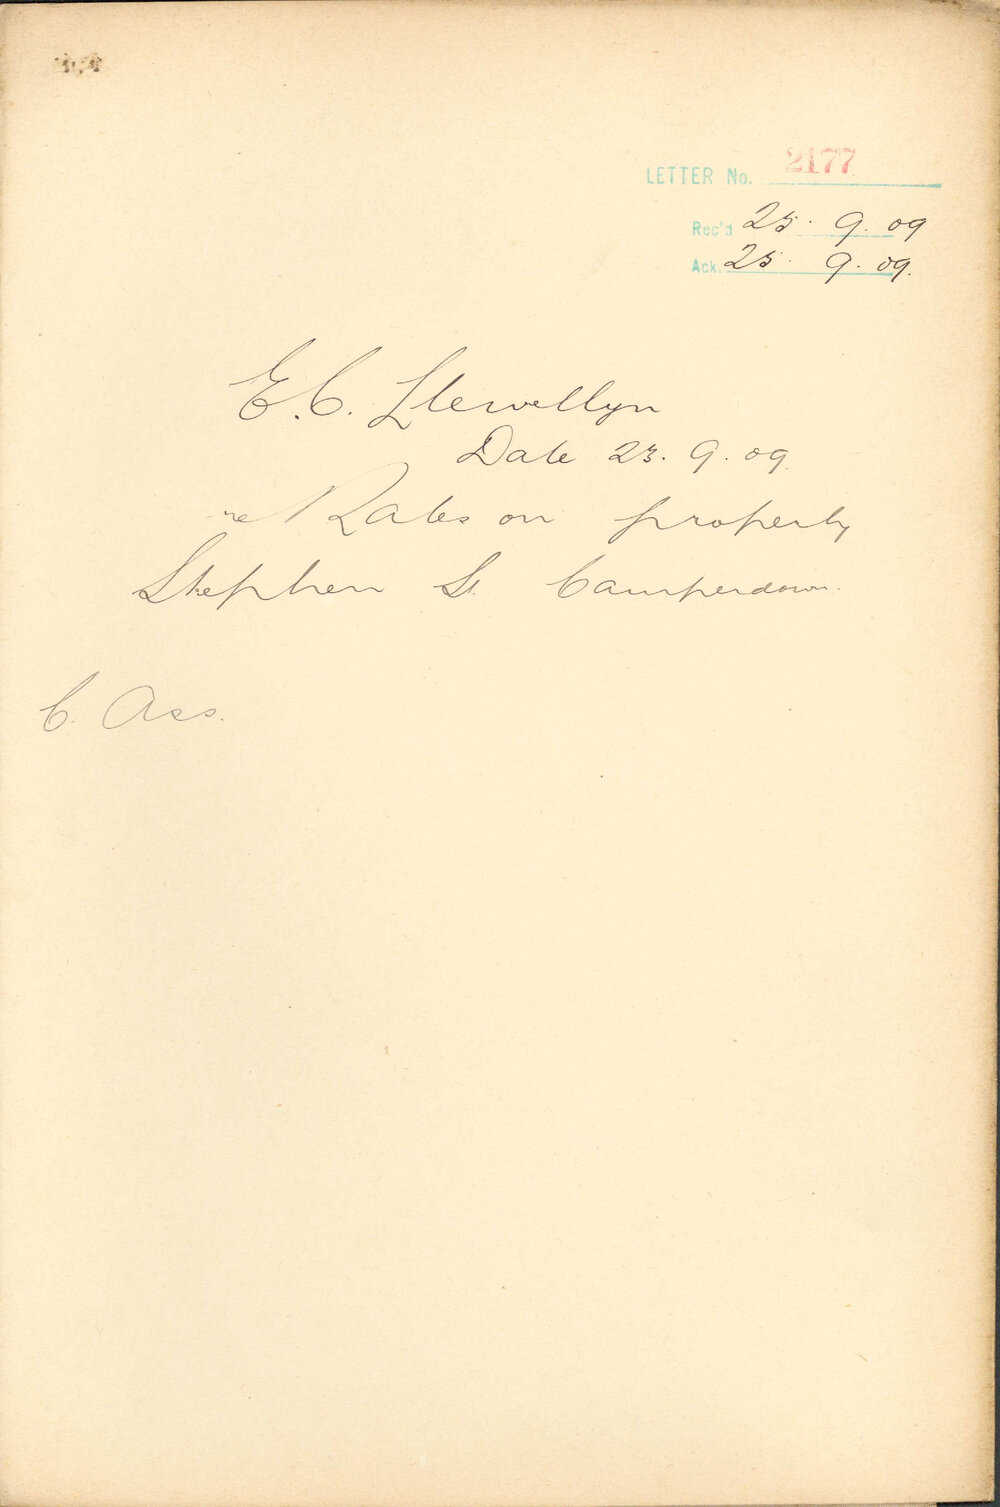 LETTER No. 2177
Rec'd 25. 9. 09
Ack. 25. 9. 09.
E. C. Llewellyn
Date 23. 9. 09.
re Rates on property
Stephen St. Camperdown.
C. Ass.